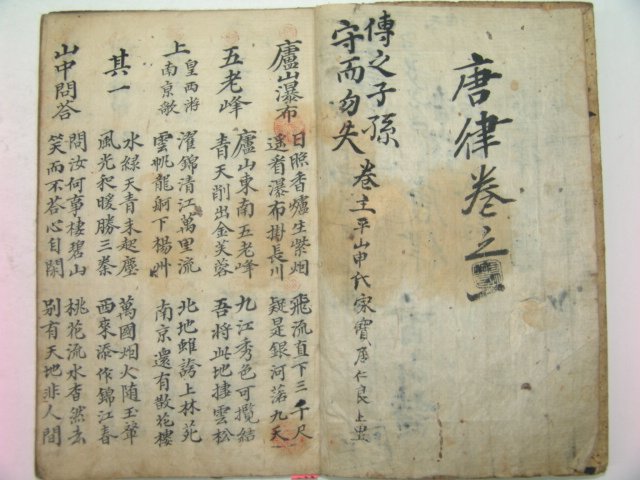 唐律卷之一
傳之子孫
守而勿失
卷主平山申氏家寶
廬山瀑布
日照香爐生紫烟
遙看瀑布掛長川
飛流直下三千尺
疑是銀河落九天
五老峰
廬山東南五老峰
青天削出金芙蓉
九江秀色可攬結
吾將此地捿雲松
上皇西游南京歌
濯錦清江萬里流
雲帆龍舸下楊州
北地雖誇上林苑
南京還有散花樓
其一
水綠天青未起塵
風光和暖勝三秦
萬國烟火隨玉輦
西來添作錦江春
山中問答
問汝何事棲碧山
笑而不答心自閑
桃花流水杳然去
別有天地非人間